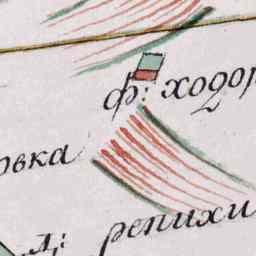 ф: ходор
овка
л: репихи